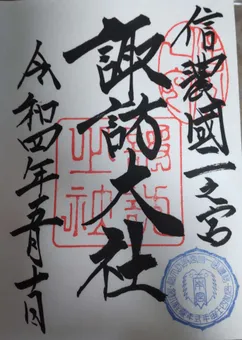 信濃國一之宮
諏訪大社
令和四年五月十日